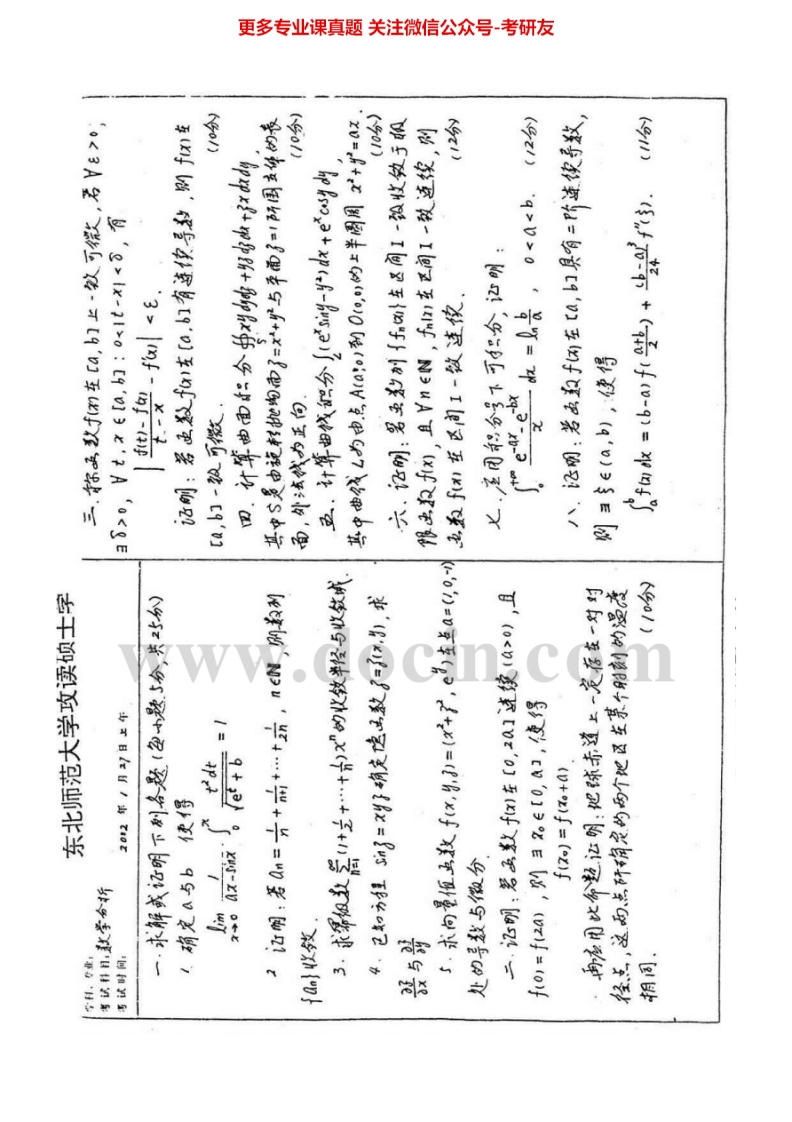 更多专业课真题 关注微信公众号-考研友
东北师范大学攻读硕士学
学科、专业:
考试科目:数学分析
考试时间: 2002 年 1 月 27 日上午
一. 求解或证明下列各题(每小题5分,共25分)
1. 确定a与b 使得
lim_{x→0} 1/(ax-sinx) ∫_0^x t²dt/√(e^t+b) = 1
2 证明:若an = 1/n + 1/(n+1) + … + 1/2n , n∈N, 则数列
{an}收敛.
3. 求幂级数 Σ(1+1/2+…+1/n)xⁿ的收敛半径与收敛域.
4. 已知方程 sinz=xyz确定隐函数z=z(x,y), 求
∂z/∂x 与 ∂z/∂y
5. 求向量值函数 f(x,y,z)=(x²+z², e^y)在点a=(1,0,-1)
处的导数与微分.
二. 证明:若函数f(x)在[0,2a]连续(a>0), 且
f(0)=f(2a), 则∃x₀∈[0,a], 使得
f(x₀)=f(x₀+a).
再应用此命题证明:地球赤道上一定存在一对对
径点,这两点所确定的两个地区在某个时刻的温度
相同. (10分)
三. 称函数f(x)在[a,b]上一致可微,若∀ε>0,
∃δ>0, ∀t,x∈[a,b]: 0<|t-x|<δ, 有
|(f(t)-f(x))/(t-x) - f'(x)| < ε.
证明:若函数f(x)在[a,b]有连续导数,则f(x)在
[a,b]一致可微. (10分)
四. 计算曲面积分∯_S xydydz+yzdzdx+zxdxdy,
其中S是由旋转抛物面z=x²+y²与平面z=1所围立体的表
面,外法线为正向. (10分)
五. 计算曲线积分∫_L(e^x siny-y²)dx+e^x cosydy,
其中曲线L为由点A(a,0)到O(0,0)的上半圆周 x²+y²=ax. (10分)
六. 证明:若函数列{fn(x)}在区间I一致收敛于极
限函数f(x), 且∀n∈N, fn(x)在区间I一致连续,则
函数f(x)在区间I一致连续. (12分)
七. 应用积分号下可积分,证明:
∫_0^{+∞} (e^{-ax}-e^{-bx})/x dx = ln b/a , 0<a<b. (12分)
八. 证明:若函数f(x)在[a,b]具有二阶连续导数,
则∃ξ∈(a,b), 使得
∫_a^b f(x)dx=(b-a)f((a+b)/2)+ (b-a)³/24 f''(ξ). (11分)
www.docin.com